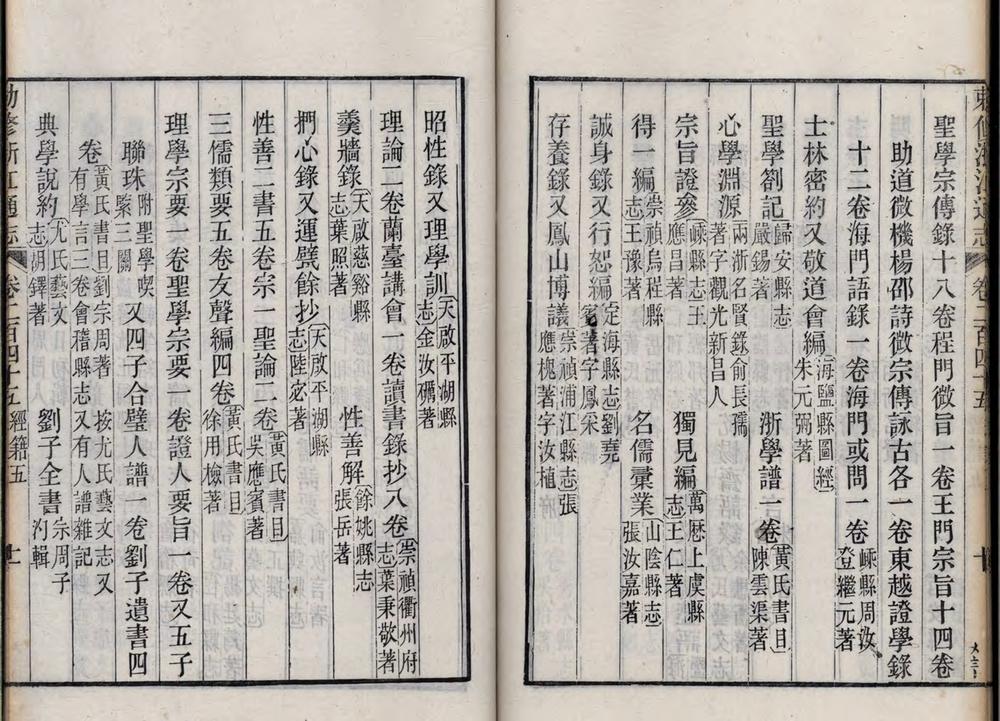 聖學宗傳錄十八卷程門微旨一卷王門宗旨十四卷
助道微機楊邵詩微宗傳詠古各一卷東越證學錄
十二卷海門語錄一卷海門或問一卷嵊縣周汝登繼元著
士林密約又敬道會編海鹽縣圖經朱元弼著
聖學劄記歸安縣志嚴錫著 浙學譜一卷黃氏書目陳雲渠著
心學淵源兩浙名賢錄俞長孺著字觀光新昌人
宗旨證參嵊縣志王應昌著 獨見編萬厯上虞縣志王仁著
得一編崇禎烏程縣志王豫著 名儒彚業山陰縣志張汝嘉著
誠身錄又行恕編定海縣志劉堯著字鳳采
存養錄又鳳山博議崇禎浦江縣志張應槐著字汝植
敕修浙江通志 卷二百四十五 經籍五 十
昭性錄又理學訓天啟平湖縣志金汝礪著
理論二卷蘭臺講會一卷讀書錄抄八卷崇禎衢州府志葉秉敬著
羹牆錄天啟慈谿縣志葉照著 性善解餘姚縣志張岳著
捫心錄又運甓餘抄天啟平湖縣志陸宓著
性善二書五卷宗一聖論二卷黃氏書目吳應賓著
三儒類要五卷友聲編四卷黃氏書目徐用檢著
理學宗要一卷聖學宗要一卷證人要旨一卷又五子
聯珠附聖學喫緊三關 又四子合璧人譜一卷劉子遺書四
卷黃氏書目劉宗周著 按尤氏藝文志又有學言三卷會稽縣志又有人譜雜記
典學說約尤氏藝文志胡鐸著 劉子全書宗周子汋輯
勅修浙江通志 卷二百四十五 經籍五 十一